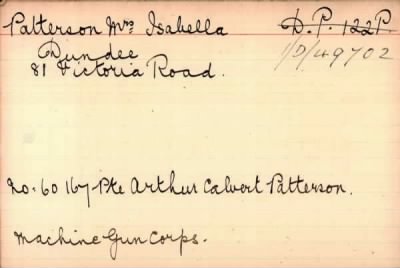 Patterson Mrs Isabella D.P. 122P.
Dundee 1/D/49702
81 Victoria Road.
No. 60167 Pte Arthur Calvert Patterson.
Machine Gun Corps.